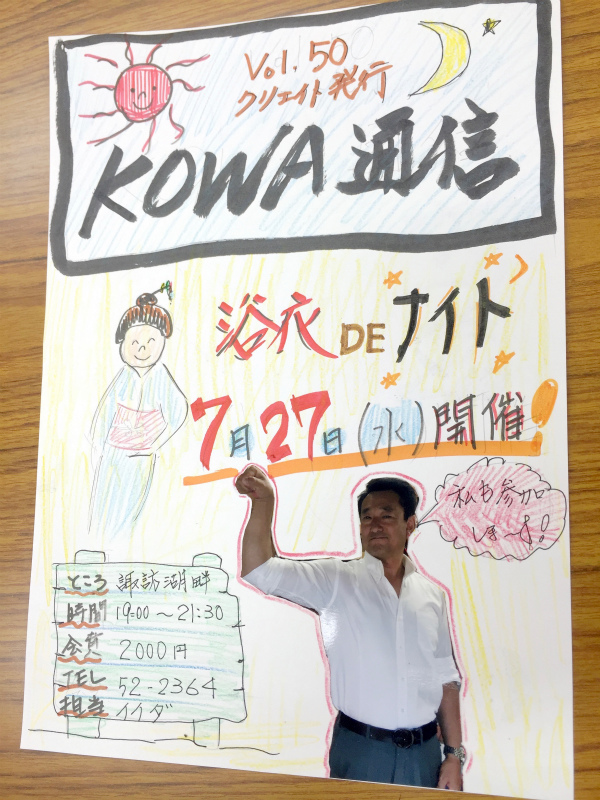 Vol.50
クリエイト発行
KOWA通信
浴衣DEナイト
7月27日(水)開催!
私も参加
しま〜す!
ところ 諏訪湖畔
時間 19:00〜21:30
会費 2000円
TEL 52-2364
担当 イイダ